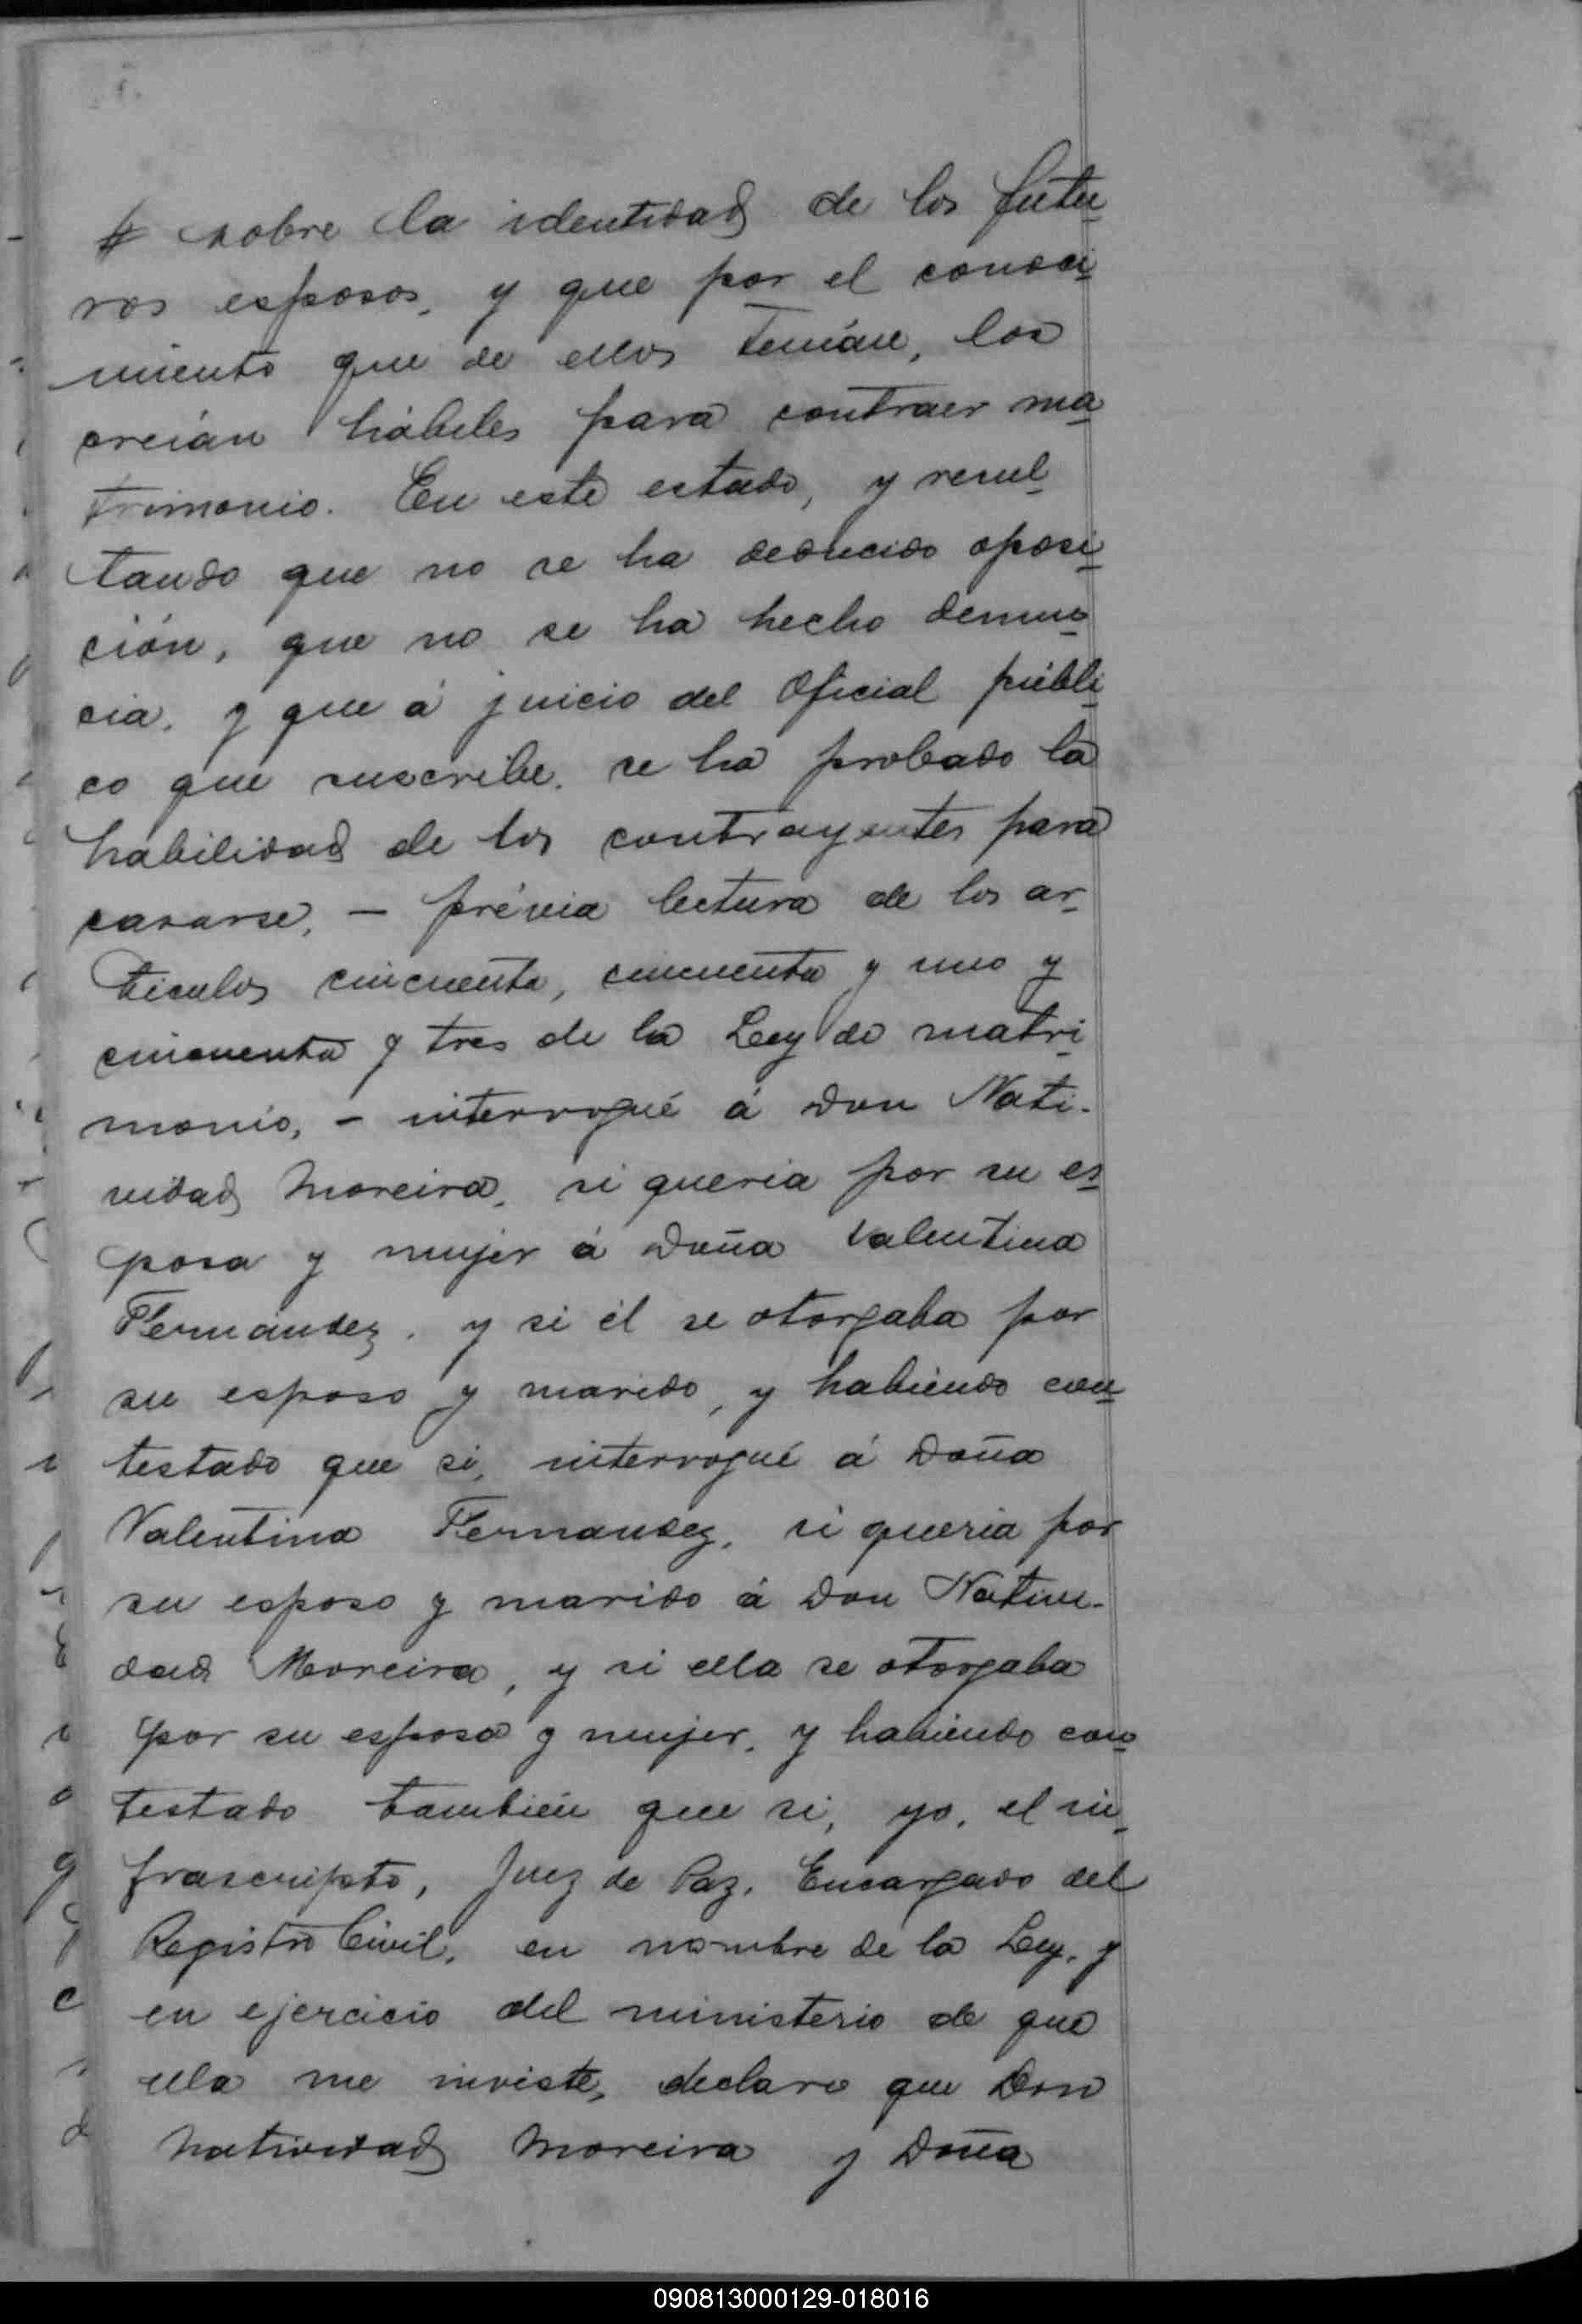 # sobre la identidad de los futu
ros esposos, y que por el conoci
miento que de ellos tenían, los
creían hábiles para contraer ma
trimonio. En este estado, y resul
tando que no se ha deducido oposi
ción, que no se ha hecho denun
cia, y que á juicio del Oficial públi
co que suscribe, se ha probado la
habilidad de los contrayentes para
casarse, — prévia lectura de los ar
tículos cincuenta, cincuenta y uno y
cincuenta y tres de la Ley de matri
monio, — interrogué á Don Nati-
vidad Moreira, si queria por su es
posa y mujer á Doña Valentina
Fernández, y si él se otorgaba por
su esposo y marido, y habiendo con
testado que si, interrogué á Doña
Valentina Fernandez, si queria por
su esposo y marido á Don Nativi-
dad Moreira, y si ella se otorgaba
por su esposa y mujer, y habiendo con
testado también que si, yo, el in
frascripto, Juez de Paz, Encargado del
Registro Civil, en nombre de la Ley, y
en ejercicio del ministerio de que
ella me inviste, declaro que Don
Natividad Moreira y Doña
090813000129-018016